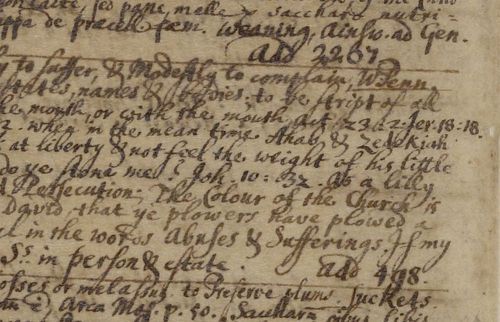 lacte, sed pane, melle & saccharo nutri-
ppa de præcell fæm. Weaning, Ainsw. ad Gen.
Add 2267.
y to suffer, & Modestly to complain, W Penn
states, names & bodies, to be stript of all
the mouth, or with the mouth Act. 23.2. Jer. 18:18.
2. when in the mean time Ahab, & Zedekiah
at liberty & not feel the weight of his little
do ye stone me? Joh. 10:32. As a lilly
d Persecution, The Colour of the Church is
David, that ye plowers have plowed a
el in the words Abuses & Sufferings If my
Ss. in person & estate. Add 498.
osses or melasses to Preserve plums. Suckets
Arca Mos. p. 50. Saccharu